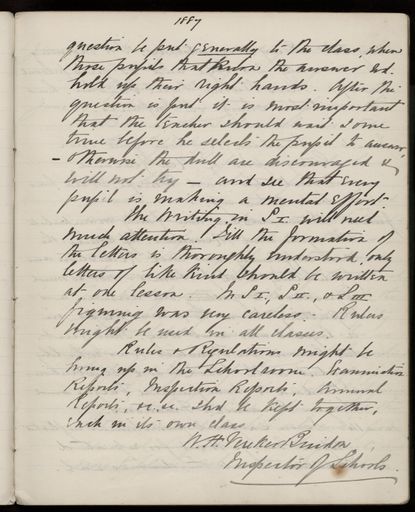 1887
question be put generally to the class, when
those pupils that know the answer wd.
hold up their right hands. After the
question is put it is most important
that the teacher should wait some
time before he selects the pupil to answer,
- otherwise the dull are discouraged &
will not try - and see that every
pupil is making a mental effort.
The Writing in S I. will need
much attention. Till the formation of
the letters is thoroughly understood, only
letters of like kind should be written
at one lesson. In S I, S II, & S III
figuring was very careless. Rulers
might be used in all classes.
Rules & Regulations might be
hung up in the Schoolroom. Examination
Reports, Inspection Reports, Annual
Reports, &c. &c. shd be kept together,
each in its own class
W. H.
Inspector of Schools.